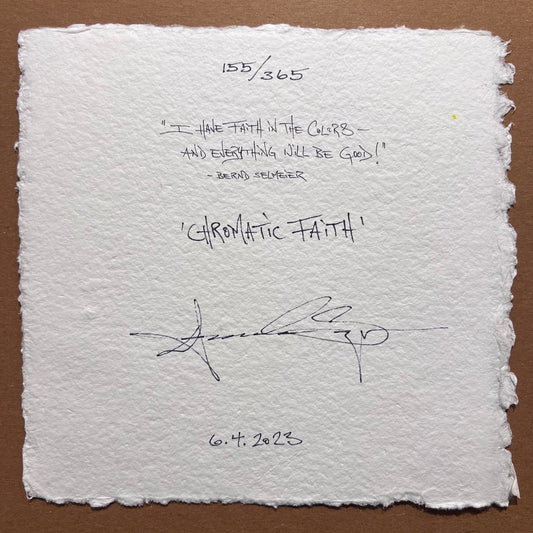 155/365
"I HAVE FAITH IN THE COLORS –
AND EVERYTHING WILL BE GOOD!"
- BERND SELMEIER
'CHROMATIC FAITH'
6.4.2023